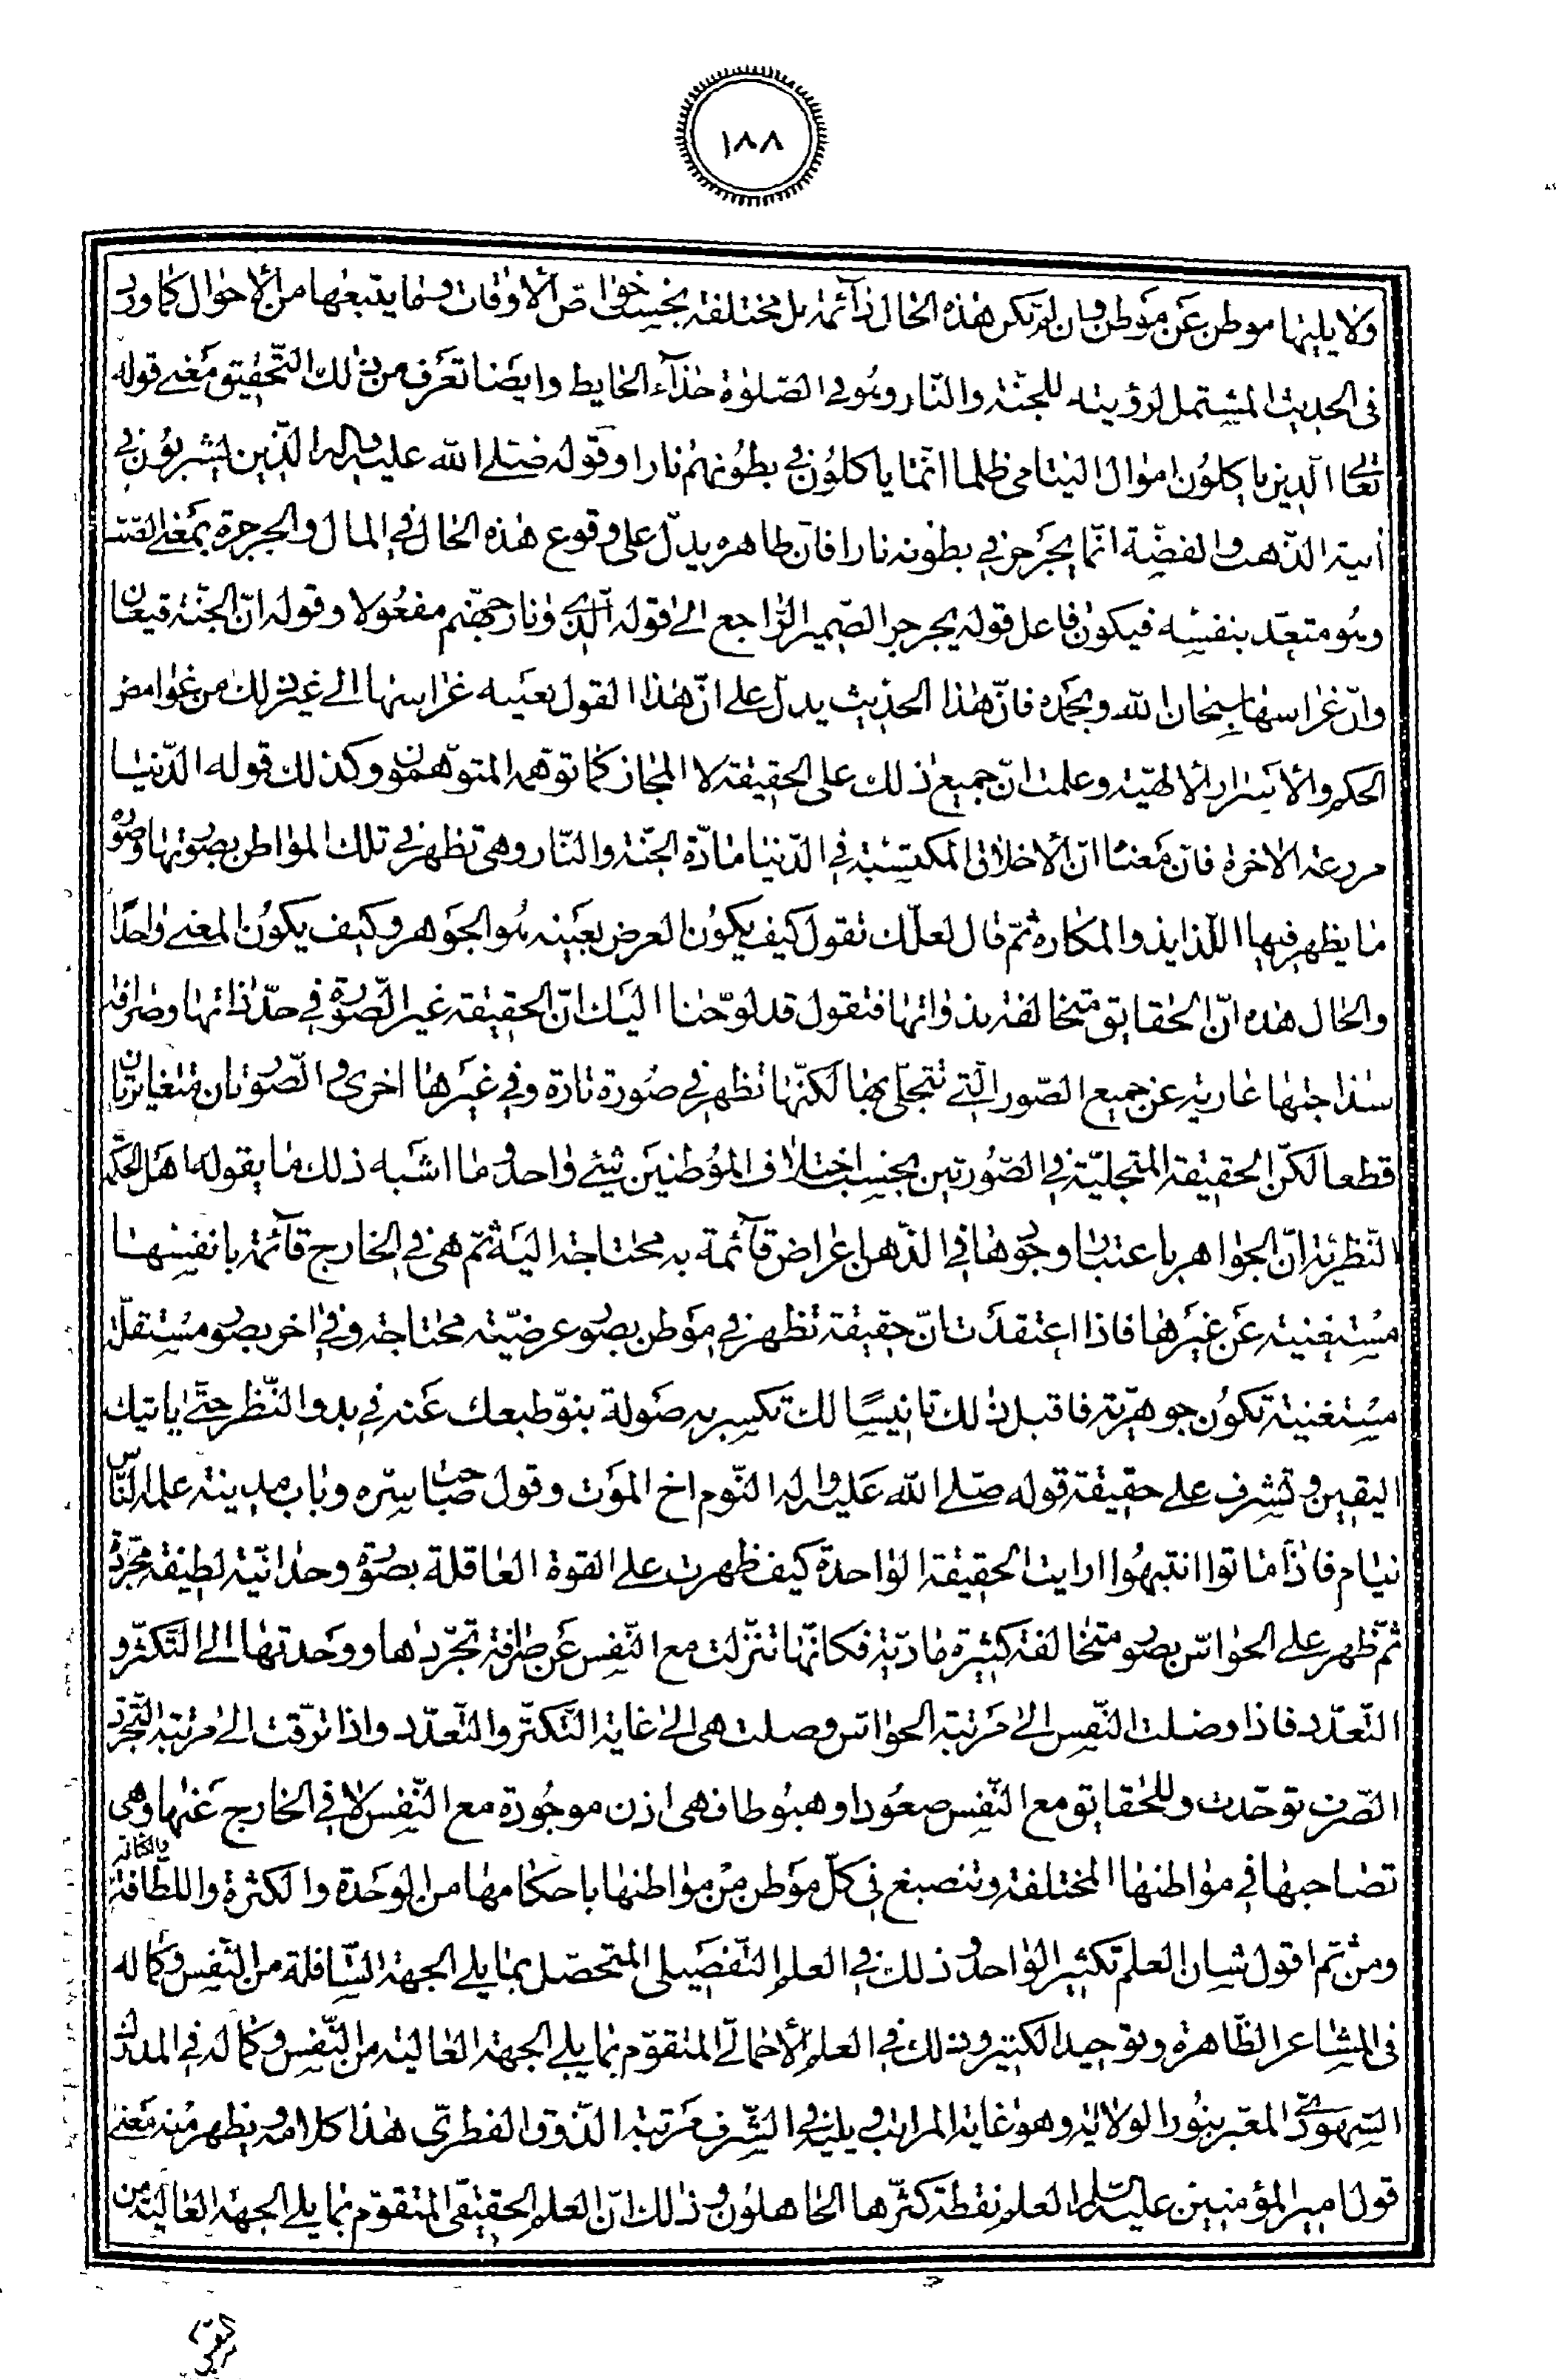 ١٨٨
ولا يلهيها موطن عن موطن وان لم تكن هذه الحال دائمة بل مختلفة بحسب خواص الاوقات وما يتبعها من الاحوال كما ورد
فى الحديث المشتمل لرؤيته للجنّة والنّار وهو فى الصّلوة حذاء الحايط وايضا تعرف من ذلك التّحقيق معنى قوله
تعالى الّذين ياكلون اموال اليتامى ظلما انّما ياكلون فى بطونهم نارا وقوله صلّى الله عليه واله الّذين يشربون فى
انية الذّهب والفضّة انّما يجرجر فى بطونه نارا فانّ ظاهره يدلّ على وقوع هذه الحال فى المال والجرجرة بمعنى الصّب
وهو متعدّ بنفسه فيكون فاعل قوله يجرجر الضّمير الرّاجع الى قوله الّذى ونار جهنّم مفعولا وقوله انّ الجنّة قيعان
وانّ غراسها سبحان الله وبحمده فانّ هذا الحديث يدلّ على انّ هذا القول بعينه غراسها الى غير ذلك من غوامض
الحكم والاسرار الالهيّة وعلمت انّ جميع ذلك على الحقيقة لا المجاز كما توهّمه المتوهّمون وكذلك قوله الدّنيا
مزرعة الاخرة فانّ معناه انّ الاخلاق المكتسبة فى الدّنيا مادّة الجنّة والنّار وهى تظهر فى تلك المواطن بصورتها وصورة
ما يظهر فيها اللّذايذ والمكاره ثمّ قال لعلّك تقول كيف يكون العرض بعينه هو الجوهر وكيف يكون المعنى واحدا
والحال هذه انّ الحقايق متخالفة بذواتها فنقول قد لوّحنا اليك انّ الحقيقة غير الصّورة فى حدّ ذاتها وصرافة
سذاجتها عارية عن جميع الصّور الّتى تتجلّى بها لكنّها تظهر فى صورة تارة وفى غيرها اخرى والصّورتان متغايرتان
قطعا لكنّ الحقيقة المتجلّية فى الصّورتين بحسب اختلاف الموطنين شئ واحد وما اشبه ذلك ما يقوله اهل الحكمة
النّظريّة انّ الجواهر باعتبار وجودها فى الذّهن اعراض قائمة به محتاجة اليه ثمّ هى فى الخارج قائمة بانفسها
مستغنية عن غيرها فاذا اعتقدت انّ حقيقة تظهر فى موطن بصورة عرضيّة محتاجة وفى اخر بصورة مستقلّة
مستغنية تكون جوهريّة فاقبل ذلك تانيسا لك تكسر به صولة بنوّ طبعك عنه فى بدو النّظر حتّى ياتيك
اليقين وتشرف على حقيقة قوله صلّى الله عليه واله النّوم اخ الموت وقول صاحب سرّه وباب مدينة علمه النّاس
نيام فاذا ماتوا انتبهوا ارايت الحقيقة الواحدة كيف ظهرت على القوة العاقلة بصورة وحدانيّة لطيفة مجرّدة
ثمّ ظهر على الحواسّ بصور متخالفة كثيرة مادّية فكانّها تنزّلت مع النّفس عن صرافة تجرّدها ووحدتها الى التّكثّر و
التّعدّد فاذا وصلت النّفس الى مرتبة الحواسّ وصلت هى الى غاية التّكثّر والتّعدّد واذا ترقّت الى مرتبة التّجرّد
الصّرف توحّدت وللحقايق مع النّفس صعودا وهبوطا فهى اذن موجودة مع النّفس لا فى الخارج عنها وهى
تصاحبها فى مواطنها المختلفة وتنصبغ فى كلّ موطن من مواطنها باحكامها من الوحدة والكثرة واللطافة والكثافة
ومن ثمّ اقول شان العلم تكثير الواحد وذلك فى العلم التّفصيلى المتحصّل بما يلى الجهة السّافلة من النّفس وكماله
فى المشاعر الظّاهرة وتوحيد الكثير وذلك فى العلم الاجمالى المتقوّم بما يلى الجهة العالية من النّفس وكماله فى المدرك
الشهودىّ المعبّر بنور الولاية وهو غاية المراتب ويليه فى الشّرف مرتبة الذّوق الفطرىّ هذا كلامه ويظهر منه معنى
قول امير المؤمنين عليه السلم العلم نقطة كثّرها الجاهلون وذلك انّ العلم الحقيقى المتقوّم بما يلى الجهة العالية من